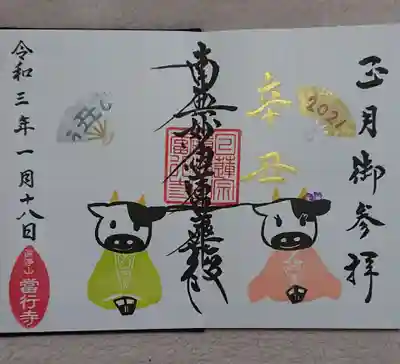 正月御参拝
2021
辛丑
南無妙法蓮華経
日蓮宗
令和三年一月十八日
當行寺